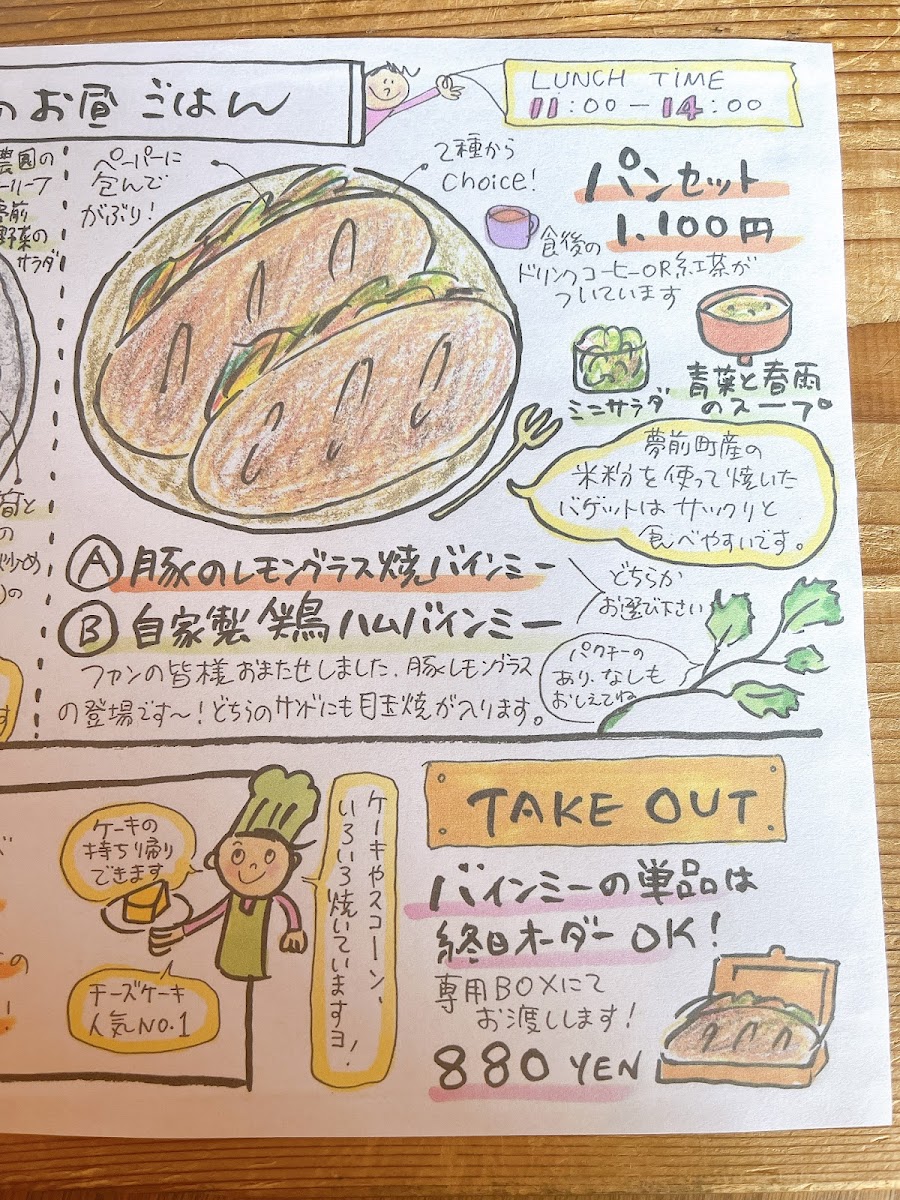 のお昼ごはん
LUNCH TIME
11:00 - 14:00
農園の
リーフ
夢前
野菜の
サラダ
ペーパーに
包んで
がぶり!
2種から
Choice!
パンセット
1,100円
食後の
ドリンクコーヒーOR紅茶が
ついています
ミニサラダ
青菜と春雨
のスープ
夢前町産の
米粉を使って焼いた
バゲットはサックリと
食べやすいです。
筍と
の
炒め
の
Ⓐ豚のレモングラス焼バインミー
Ⓑ自家製鶏ハムバインミー
どちらか
お選び下さい
ファンの皆様おまたせしました、豚レモングラス
の登場です〜!どちらのサンドにも目玉焼が入ります。
パクチーの
あり、なしも
おしえてね
す
ケーキの
持ち帰り
できます
チーズケーキ
人気NO.1
ケーキやスコーン、
いろいろ焼いていますヨ!
の
TAKE OUT
バインミーの単品は
終日オーダーOK!
専用BOXにて
お渡しします!
880 YEN